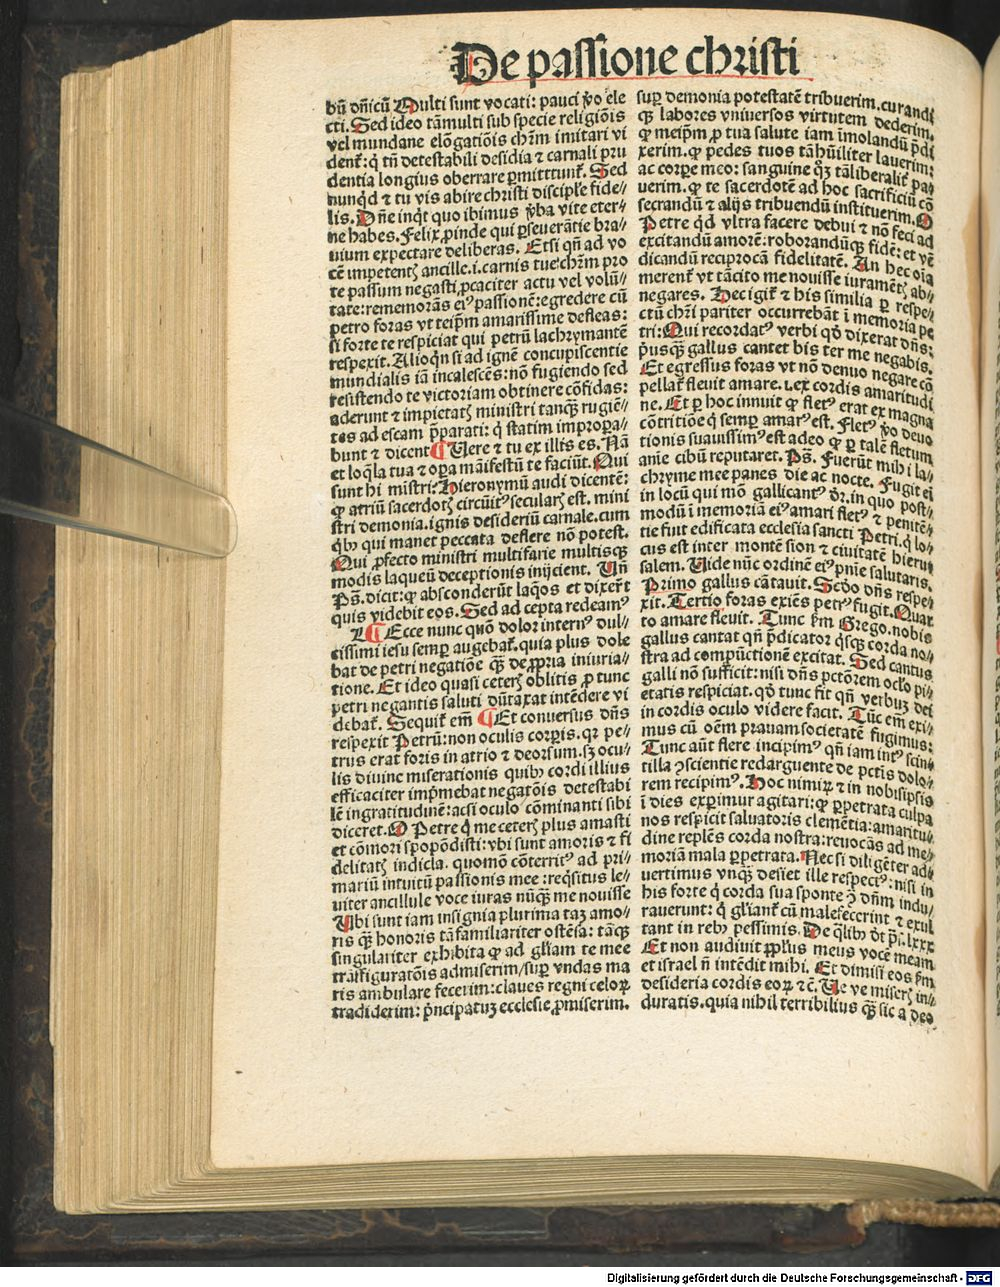 De passione christi
bū dn̄icū Multi sunt vocati: pauci ṽo ele
cti. Sed ideo tāmulti sub specie religiōis
vel mundane elōgatiōis chr̄m imitari vi
dent᷑: q̇ tn̄ detestabili desidia ⁊ carnali pru
dentia longius oberrare ꝑmittunt᷑. Sed
nunqd̄ ⁊ tu vis abire christi disciple fide⸗
lis. Dn̄e inq̇t quo ibimus ṽba vite eter⸗
ne habes. Felix ꝓinde qui ꝑseuerātie bra⸗
uium expectare deliberas. Etsi qn̄ ad vo
cē impetentꝭ ancille .i. carnis tue chr̄m pro
te passum negasti ꝓcaciter actu vel volū⸗
tate: rememorās eiꝰ passionē: egredere cū
petro foras vt teip̄m amarissime defleas:
si forte te respiciat qui petrū lachrymantē
respexit. Alioqn̄ si ad ignē concupiscentie
mundialis iā incalescēs: nō fugiendo sed
resistendo te victoriam obtinere cōfidas:
aderunt ⁊ impietatꝭ ministri tanqꝫ rugiē⸗
tes ad escam p̄parati: q̇ statim impropa⸗
bunt ⁊ dicent ¶ Uere ⁊ tu ex illis es. Nā
et loq̄la tua ⁊ oꝑa māifestū te faciūt. Qui
sunt hi mistri: Hieronymū audi dicentē:
ꝙ atriū sacerdotꝭ circūitꝰ secularꝭ est. mini
stri demonia. ignis desideriū carnale. cum
q̇bꝰ qui manet peccata deflere nō potest.
Qui ꝓfecto ministri multifarie multisqꝫ
modis laqueū deceptionis inijcient. Un̄
Ps̄. dicit: ꝙ absconderūt laq̄os et dixer̄t
quis videbit eos. Sed ad cepta redeamꝰ
L ¶ Ecce nunc quō dolor internꝰ dul⸗
cissimi iesu semꝑ augebat᷑. quia plus dole
bat de petri negatiōe qꝫ de ꝓpria iniuria⸗
tione. Et ideo quasi ceterꝭ oblitis ꝓ tunc
petri negantis saluti dūtaxat intēdere vi
debat᷑. Sequit᷑ em̄ ¶ Et conuersus dn̄s
respexit Petrū: non oculis corꝑis. qꝛ pe⸗
trus erat foris in atrio ⁊ deorsum. sꝫ ocu⸗
lis diuine miserationis quibꝰ cordi illius
efficaciter imp̄mebat negatōis detestabi
lē ingratitudinē: acsi oculo cōminanti sibi
diceret. O Petre q̇ me ceterꝭ plus amasti
et cōmori spopōdisti: vbi sunt amoris ⁊ fi
delitatꝭ indicla. quomō cōterritꝰ ad pri⸗
mariū intuitū passionis mee: reqsitus le⸗
uiter ancillule voce iuras nūqꝫ me nouisse
Ubi sunt iam insignia plurima taꝫ amo⸗
ris qꝫ honoris tā familiariter ostēsa: tāqꝫ
singulariter exhibita ꝙ ad gl̄iam te mee
trāffiguratōis admiserim/suꝑ vndas ma
ris ambulare fecerim: claues regni celoꝝ
tradiderim: p̄ncipatuꝫ ecclesie ꝓmiserim.
suꝑ demonia potestatē tribuerim. curandi
qꝫ labores vniuersos virtutem dederim.
ꝙ meip̄m ꝓ tua salute iam īmolandū p̄di
xerim. ꝙ pedes tuos tā hūiliter lauerim:
ac corꝑe meo: sanguine qꝫ tā liberalit᷑ pa⸗
uerim. ꝙ te sacerdotē ad hoc sacrificiū cō
secrandū ⁊ alijs tribuendū instituerim. O
Petre qd̄ vltra facere debui ⁊ nō feci ad
excitandū amorē: roborandūqꝫ fidē: et vē
dicandū reciprocā fidelitatē. An hec oīa
merent᷑ vt tācito me nouisse iuramētꝭ ab⸗
negares. Hec igit᷑ ⁊ his similia ꝑ respe⸗
ctū chr̄i pariter occurrebāt ī memoria pe
tri: Qui recordatꝰ verbi qd̄ dixerat dn̄s:
p̄usqꝫ gallus cantet bis ter me negabis.
Et egressus foras vt nō denuo negare cō
pellat᷑ fleuit amare. i. ex cordis amaritudi
ne. Et ꝑ hoc innuit ꝙ fletꝰ erat ex magna
cōtritiōe q̇ semꝑ amarꝰ est. Fletꝰ ṽo deuo
tionis suauissimꝰ est adeo ꝙ ꝑ talē fletum
anīe cibū reputaret. Ps̄. Fuerūt mihi la⸗
chryme mee panes die ac nocte. Fugit ei
in locū qui mō gallicantꝰ dr̄. in quo post⸗
modū ī memoriā eiꝰ amari fletꝰ ⁊ penitē⸗
tie fuit edificata ecclesia sancti Petri. q̇ lo⸗
cus est inter montē sion ⁊ ciuitatē hieru
salem. Uide nūc ordinē eiꝰ pn̄ie salutaris.
Primo gallus cātauit. Scd̄o dn̄s respe
xit. Tertio foras exiēs petrꝰ fugit. Quar
to amare fleuit. Tunc ẜm Grego. nobis
gallus cantat qn̄ p̄dicator q̇sqꝫ corda no⸗
stra ad compūctionē excitat. Sed cantus
galli nō sufficit: nisi dn̄s pctōrem oclo pi⸗
etatis respiciat. qd̄ tunc fit qn̄ verbuꝫ dei
in cordis oculo videre facit. Tūc em̄ exi⸗
mus cū oēm prauam societatē fugimus:
Tunc aūt flere incipimꝰ qn̄ iam intꝰ scin⸗
tilla ꝯscientie redarguente de pctīs dolo⸗
rem recipimꝰ. Hoc nimiꝝ ⁊ in nobisipsis
ī dies exꝑimur agitari: ꝙ ꝑpetrata culpa
nos respicit saluatoris clemētia: amaritu⸗
dine replēs corda nostra: reuocās ad me⸗
moriā mala ꝑpetrata. Nec si diligēter ad⸗
uertimus vnqꝫ desiet ille respectꝰ: nisi in
his forte q̇ corda sua sponte ꝯ dn̄m indu⸗
rauerunt: q̇ gl̄iant᷑ cū malefecerint ⁊ exul
tant in rebꝰ pessimis. De q̇libꝰ dr̄ ps̄. lxxx
Et non audiuit pp̄lus meus vocē meam
et israel n̄ intēdit mihi. Et dimisi eos ẜm
desideria cordis eoꝝ ⁊c̄. Ue ve miserꝭ in⸗
duratis. quia nihil terribilius qꝫ sic a deo
Digitalisierung gefördert durch die Deutsche Forschungsgemeinschaft - DFG